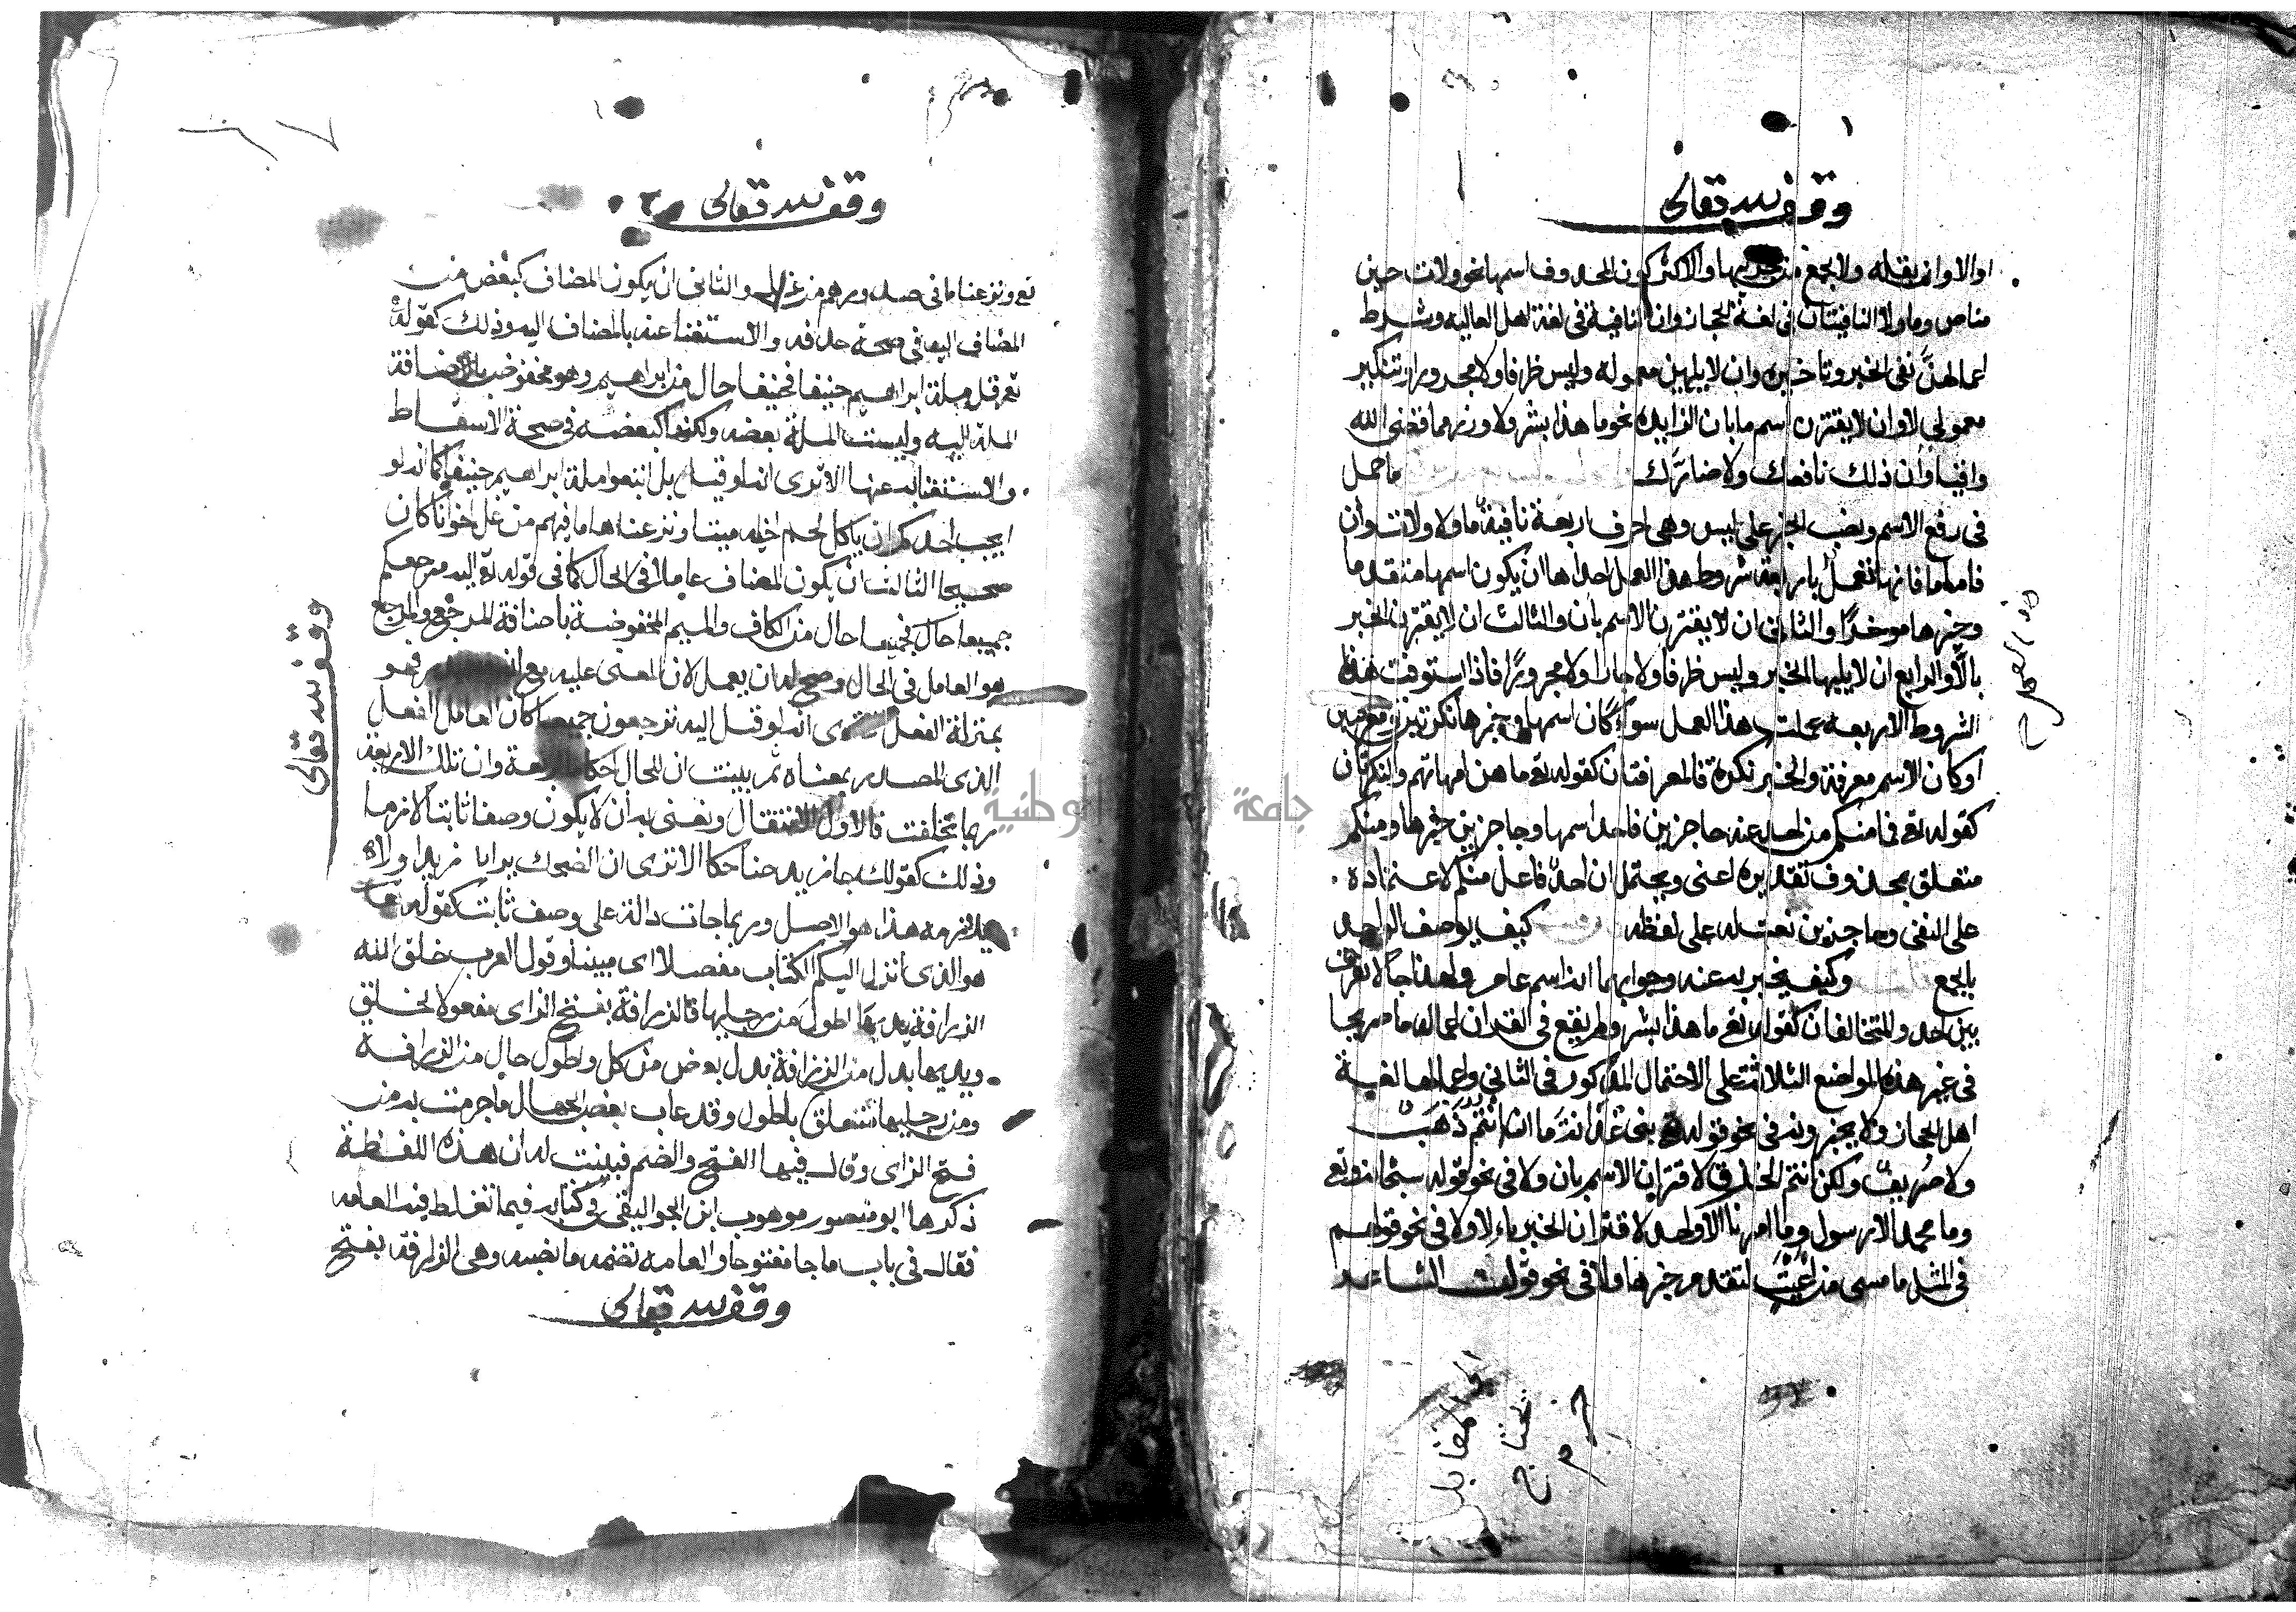 وقف لله تعالى
او الاوان بقلة ولا يجمع بين جزيها والاكثر كون المحذوف اسمها نحو ولات حين
مناص وما ولا النافيتان في لغة الحجاز وان النافية في لغة اهل العالية وشرط
اعمالهن نفي الخبر وتاخيره وان لا يليهن معموله وليس ظرفا ولا مجرورا وتنكير
معمولي لا وان لا يقترن اسم ما بان الزايدة نحو ما هذا بشرا ولا وزر مما قضى الله
واقيا وان ذلك نافعك ولا ضارك ما حمل
في رفع الاسم ونصب الخبر على ليس وهي احرف اربعة نافية ما ولا ولات وان
فاما ما فانها تعمل باربعة شروط هذا العمل احداها ان يكون اسمها متقدما
وخبرها موخرا والثاني ان لا يقترن الاسم بان والثالث ان لا يقترن الخبر
بالا والرابع ان لا يليها الخبر وليس ظرفا ولا جارا ولا مجرورا فاذا استوفت هذه
الشروط الاربعة عملت هذا العمل سواء كان اسمها وخبرها نكرتين او معرفتين
او كان الاسم معرفة والخبر نكرة فالمعرفتان كقوله تع ما هن امهاتهم والنكرتان
كقوله تع فما منكم من احد عنه حاجزين فاحد اسمها وحاجزين خبرها ومنكم
متعلق بمحذوف تقديره اعني ويحتمل ان احد فاعل منكم لاعتماده
على النفي وحاجزين نعت له على لفظه كيف يوصف الواحد
بالجمع وكيف يخبر به عنه وجوابهما انه اسم عام ولهذا جا لا نفرق
بين احد والمتخالفان كقوله تع ما هذا بشرا ولم يقع في القران اعمال ما صريحا
في غير هذه المواضع الثلاثة على الاحتمال المذكور في الثاني واعمالها لغة
اهل الحجاز ولا يجيزونه في نحو قوله بني غدانة ما ان انتم ذهب
ولا صريف ولكن انتم الخزف لاقتران الاسم بان ولا في نحو قوله سبحانه وتع
وما محمد الا رسول وما امرنا الا واحدة لاقتران الخبر بالا ولا في نحو قولهم
في المثل ما مسي من اعتب لتقدم خبرها ولا في نحو قول الشاعر
وقف لله تعالى
تع ونزعنا ما في صدورهم من غل والثاني ان يكون المضاف كبعض من
المضاف اليه في صحة حذفه والاستغنا عنه بالمضاف اليه وذلك كقوله
تع قل بل ملة ابراهيم حنيفا فحنيفا حال من ابراهيم وهو مخفوض باضافة
الملة اليه وليست الملة بعضه ولكنها كبعضه في صحة الاسقاط
والاستغنا به عنها الا ترى انه لو قيل بل اتبعوا ملة ابراهيم حنيفا كما انه لو
ايحب احدكم ان ياكل لحم اخيه ميتا ونزعنا ما فيهم من غل اخوانا كان
صحيحا الثالث ان يكون المضاف عاملا في الحال كما في قوله تع اليه مرجعكم
جميعا حال فجميعا حال من الكاف والميم المخفوضة باضافة المرجع والمرجع
هو العامل في الحال وصح له ان يعمل لان المعنى عليه مع انه فهو
بمنزلة الفعل الا ترى انه لو قيل اليه ترجعون جميعا كان العامل الفعل
الذي المصدر بمعناه ثم بينت ان للحال احكاما اربعة وان تلك الاربعة
ربما تخلفت فالاول الانتقال ونعني به ان لا يكون وصفا ثابتا لازما
وذلك كقولك جا زيد ضاحكا الا ترى ان الضحك يزايل زيدا ولا
يلازمه هذا هو الاصل وربما جات دالة على وصف ثابت كقوله تعا
هو الذي انزل اليكم الكتاب مفصلا اي مبينا وقول العرب خلق الله
الزرافة يديها اطول من رجليها فالزرافة بفتح الزاي مفعولا لخلق
ويديها بدل من الزرافة بدل بعض من كل واطول حال من الزرافة
ومن رجليها متعلق باطول وقد عاب بعض الجهال ما جزمت به من
فتح الزاي وقال فيها الفتح والضم فبينت له ان هذه اللفظة
ذكرها ابو منصور موهوب ابن الجواليقي في كتابه فيما تغلط فيه العامه
فقال في باب ما جا مفتوحا والعامه تضمه ما نصه وهي الزرافة بفتح
وقف لله تعالى
وقف لله تعالى
جامعة الوطنية